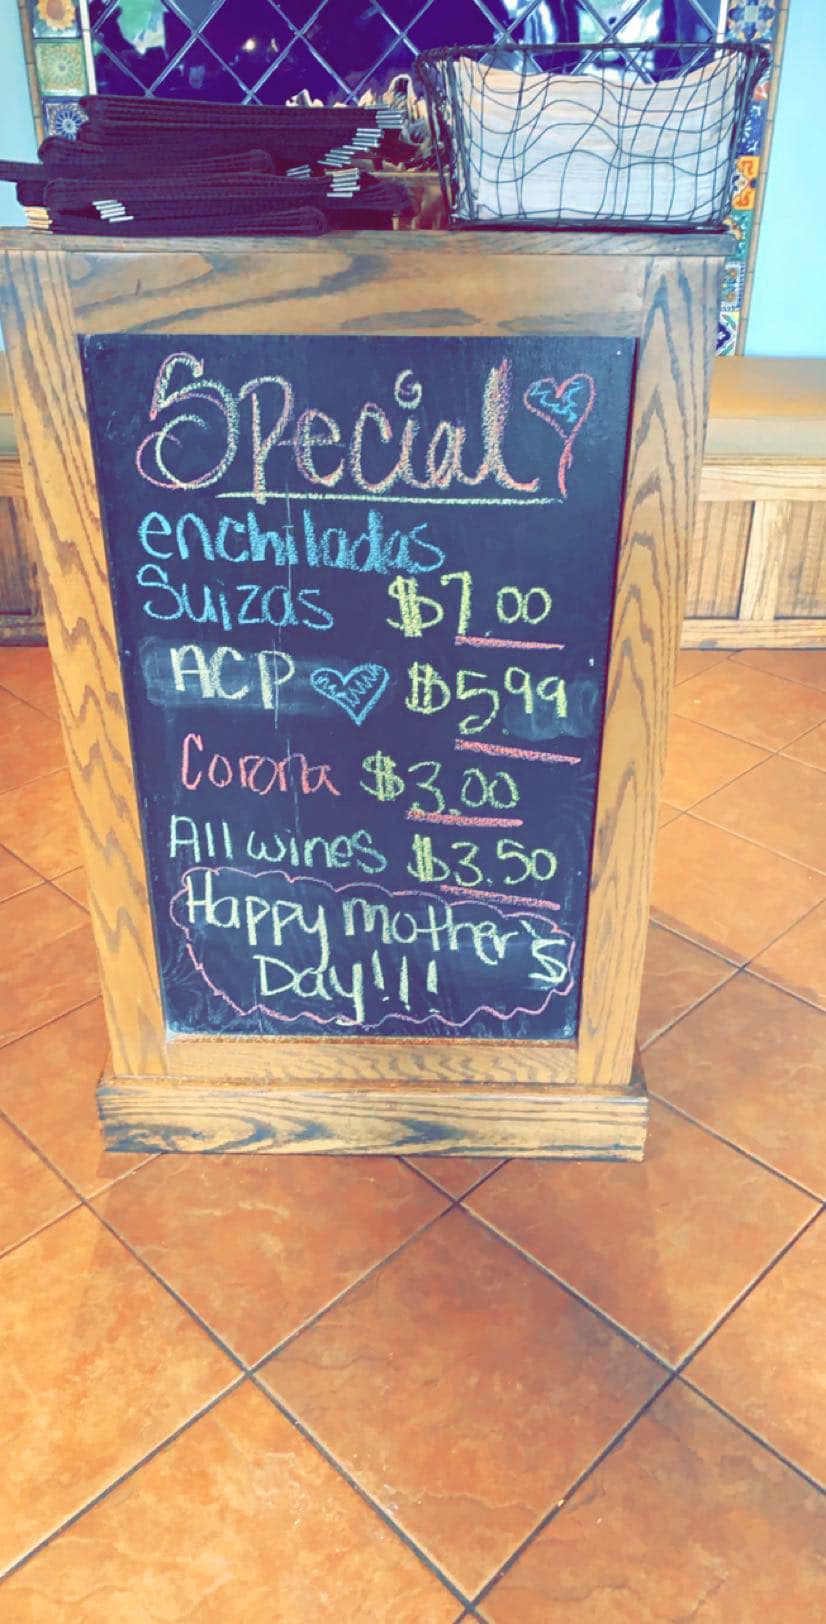 Special
enchiladas
Suizas $7.00
ACP $5.99
Corona $3.00
All wines $3.50
Happy mother's
Day!!!